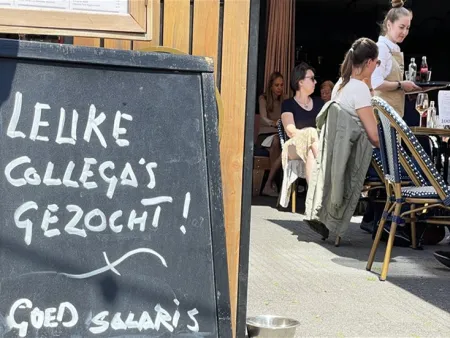 LEUKE
COLLEGA'S
GEZOCHT!
GOED SALARIS